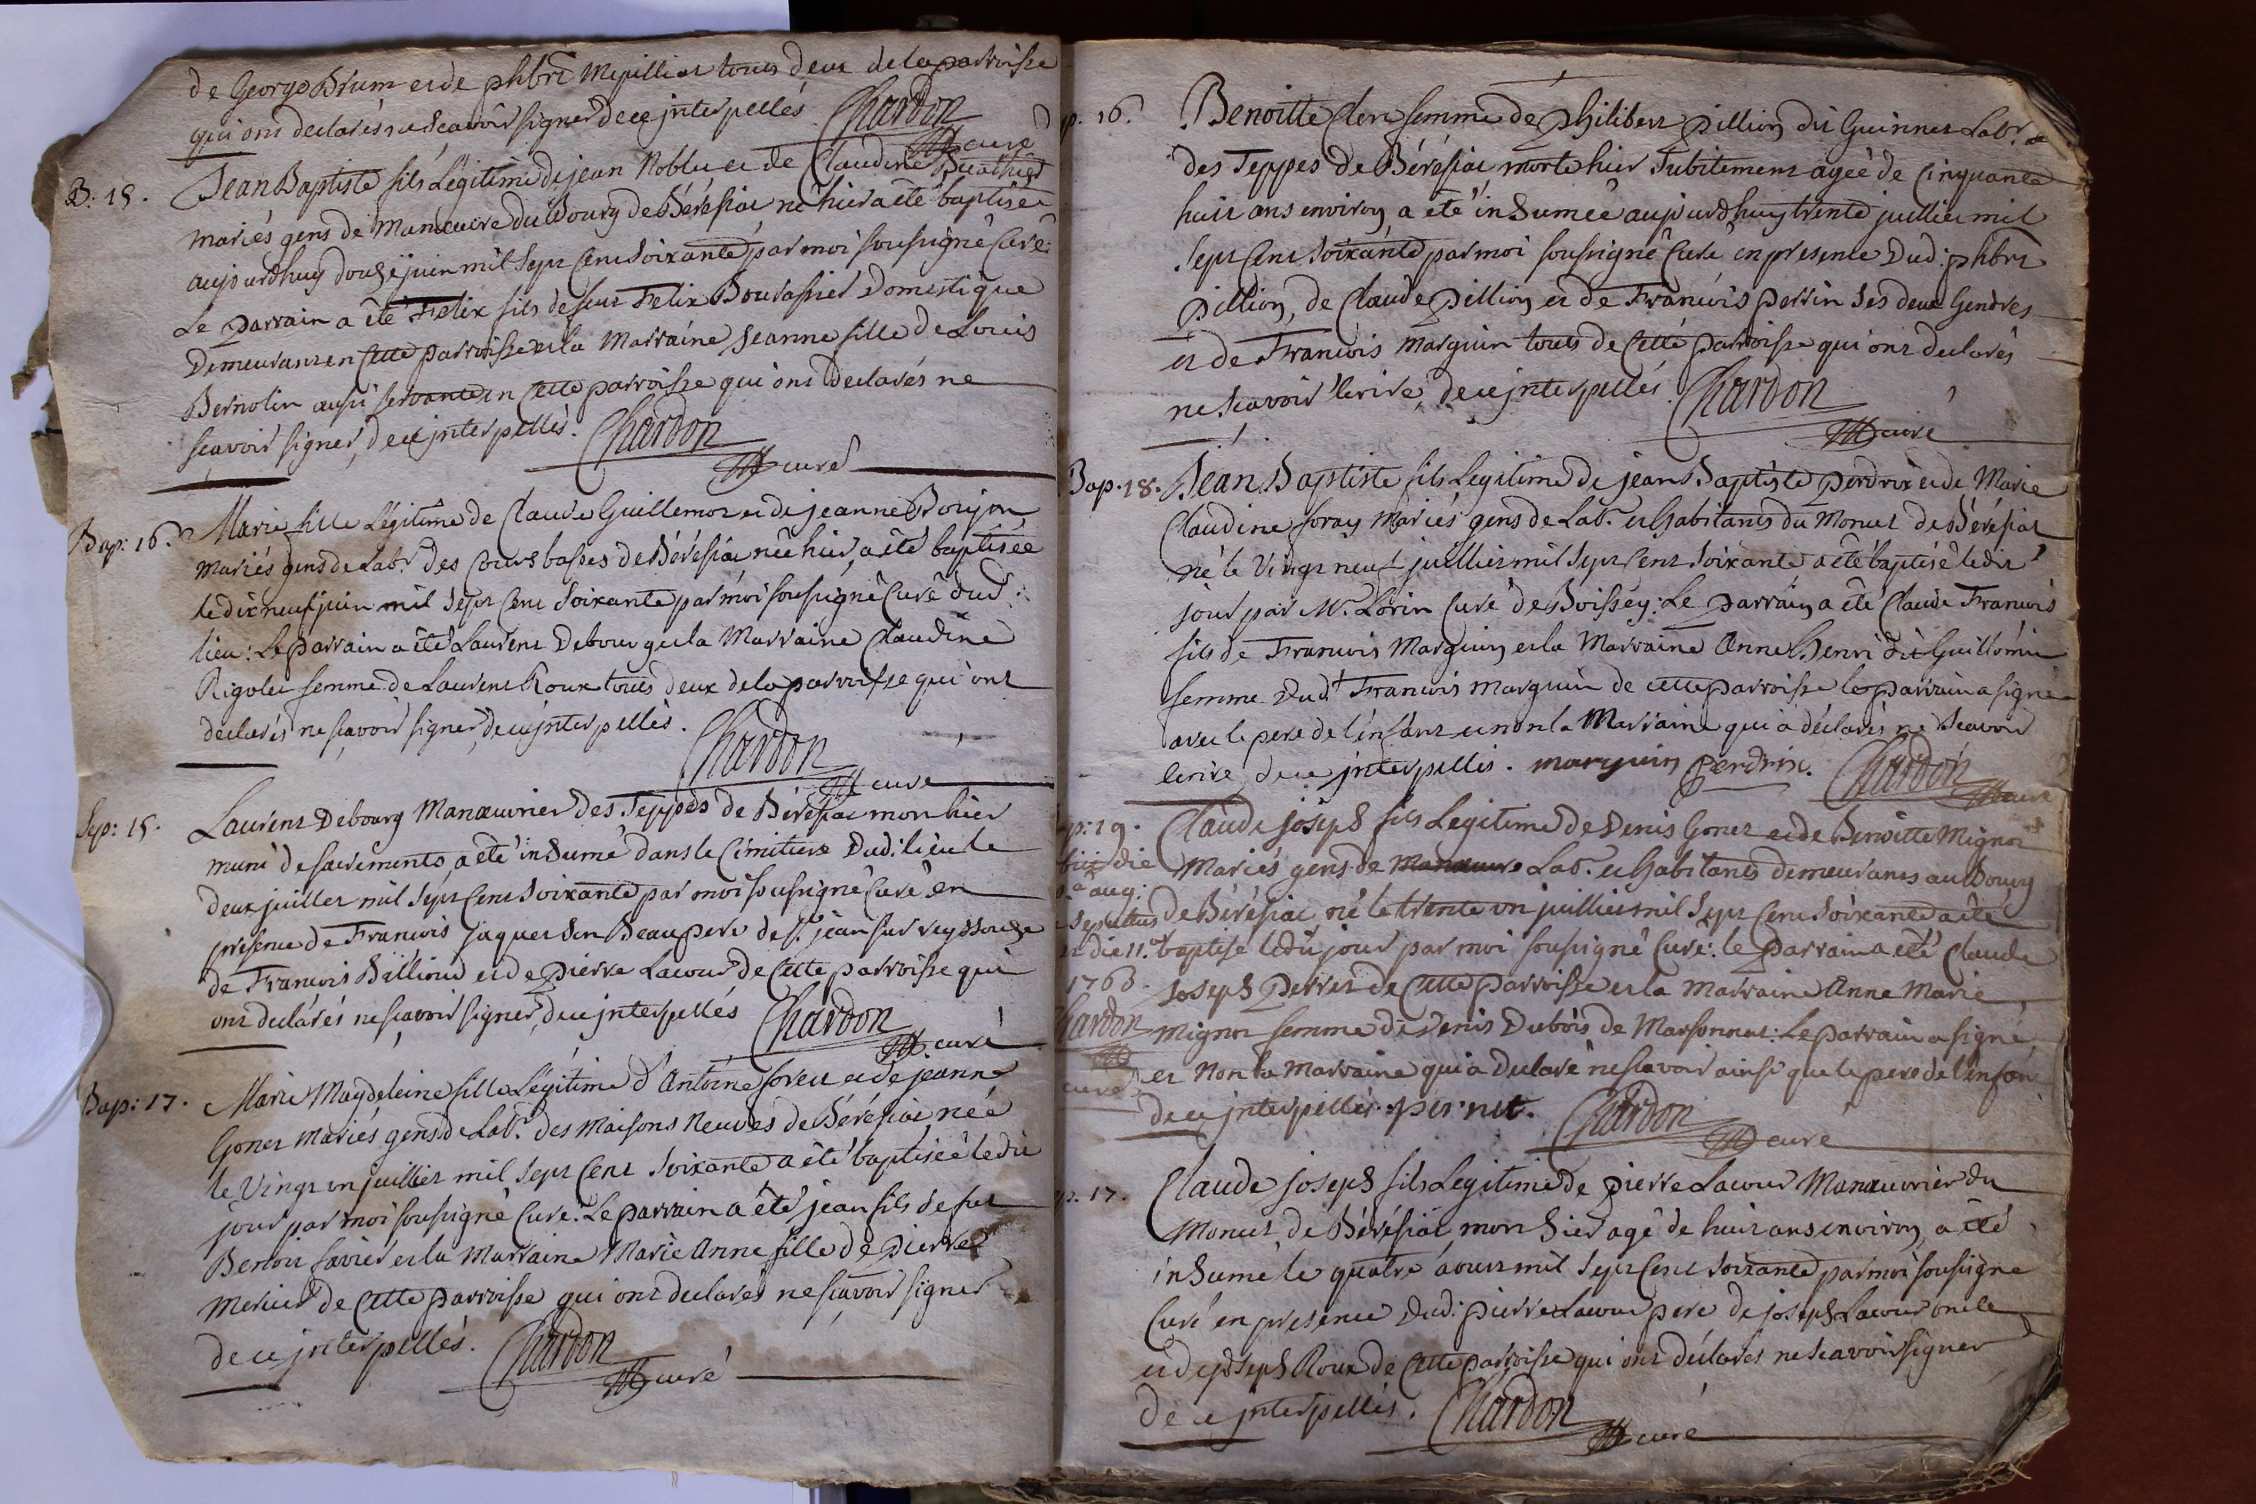 de George Brum et de phbrt Mepilliat touts deux de la parroisse
qui ont declarés ne scavoir signer de ce jnterpellés Chardon
curé
B: 15. Jean Baptiste fils Légitime de jean Noblet et de Claudine Buathier
mariés gens de Manœuvre du Bourg de Béréßiat né hier a été baptisé
aujourdhuy douze juin mil sept Cent soixante par moi soussigné Curé:
Le parrain a été Felix fils de feut Felix Bourassier Domestique
Demeurant en Cette parroisse et la Marraine Jeanne fille de Louis
Bernolin aussi servante en Cette parroisse qui ont declarés ne
scavoir signer, de ce jnterpellés. Chardon
curé
Bap: 16. Marie fille Légitime de Claude Guillemot et de jeanne Boujon
mariés gens de Labr. des Cours basses de Béréßiat née hier, a été baptisée
le dix neuf juin mil sept Cent soixante par moi soussigné Curé dud:
lieu: Le parrain a été Laurent Debourg et la Marraine Claudine
Rigolet femme de Laurent Roux touts deux de la parroisse qui ont
declarés ne scavoir signer, de ce jnterpellés.
Chardon
curé
Sep: 15. Laurent Debourg Manœuvrier des Teppes de Béréßiat mort hier
muni de sacréments, a été inhumé dans le Cimitiere Dud: lieu le
deux juillet mil sept Cent soixante par moi soussigné Curé en
présence de Francois jaquet son Beaupere de St. jean sur reyssouze
de Francois Billioud et de pierre Lacour de Cette parroisse qui
ont declarés ne scavoir signer, de ce jnterpellés Chardon
curé
Bap: 17. Marie Magdeleine fille Légitime d'Antoine foret et de jeanne
Gonet mariés gens de Labr. des Maisons Neuves de Béréßiat née
le Vingt un juillet mil sept Cent soixante a été baptisée ledit
jour par moi soussigné Curé. Le parrain a été jean fils de fut
Benoit favier et la Marraine Marie Anne fille de pierre
Mercier de Cette parroisse qui ont declarés ne scavoir signer
de ce jnterpellés. Chardon
curé
p. 16. Benoitte Clerc femme de philibert pillion dit Guinnet Labr.
des Teppes de Béréßiat morte hier subitement agée de Cinquante
huit ans environ a été inhumée aujourdhuy trente juillet mil
sept Cent soixante par moi soussigné Curé en presence Dud: phbrt
pillion, de Claude pillion et de Francois perrin ses deux Gendres
et de Francois Marguin touts de Cette parroisse qui ont declarés
ne scavoir lecrire, de ce jnterpellés. Chardon
curé
Bap. 18. Jean Baptiste fils Legitime de jean Baptiste perdrix et de Marie
Claudine foray Mariés gens de Labr. et Habitants du Monet de Béréßiat
né le Vingt neuf juillet mil sept Cent soixante a été baptisé ledit
jour par Mr. Lorin Curé de Boissey. Le parrain a été Claude Francois
fils de Francois Marguin et la Marraine Anne Henri dit Guillomin
femme Dudt. Francois Marguin de cette parroisse le parrain a signé
avec le pere de l'enfant et non la Marraine qui a déclarés ne scavoir
lecrire, de ce jnterpellés. marguin perdrix. Chardon
curé
p: 19. Claude joseph fils Legitime de Denis Gonet et de Benoitte Mignot
die Mariés gens de Manœuvre Labr. et Habitants demeurants au Bourg
aug:
sepultus de Béréßiat né le trente un juillet mil sept Cent soixante a été
die 11.a baptisé ledit jour par moi soussigné Curé: le parrain a été Claude
1763. joseph perret de Cette parroisse et la Marraine Anne Marie
hardon Mignot femme de Denis Dubois de Marsonnat: Le parrain a signé
curé et Non la Marraine qui a Declaré ne scavoir ainsi que le pere de l'enfan
de ce jnterpellés. per'ret. Chardon
curé
p. 17. Claude joseph fils Legitime de pierre Lacour Manœuvrier du
Monet de Béréßiat mort hier agé de huit ans environ, a été
inhumé le quatre aoust mil sept Cent soixante par moi soussigné
Curé en presence Dud: pierre Lacour pere de joseph Lacour oncle
et de joseph Roux de Cette parroisse qui ont déclarés ne scavoir signer
de ce jnterpellés. Chardon
curé